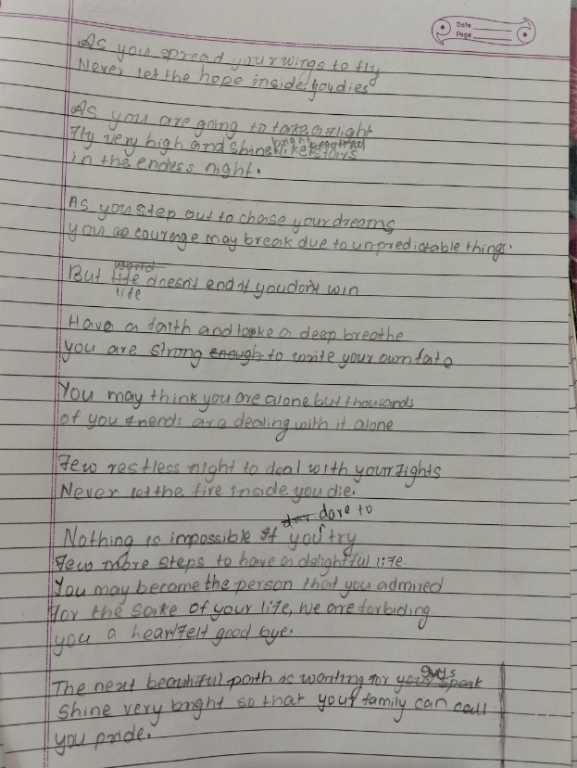 Date
Page
As you spread your wings to fly
Never let the hope inside you dies
As you are going to take a flight
Fly very high and shine bright like beautiful stars
in the endess night.
As you step out to chase your dreams
you courage may break due to unpredictable things.
But life doesn't end if you don't win
Have a faith and take a deep breathe
you are strong enough to write your own fate
You may think you are alone but thousands
of you friends are dealing with it alone
Few restless night to deal with your fights
Never let the fire inside you die.
Nothing is impossible if you dare to try
Few more steps to have a delightful life.
You may become the person that you admired
for the sake of your life, we are forbiding
you a heartfelt good bye.
The next beautiful path is wanting for guys
Shine very bright so that your family can call
you pride.